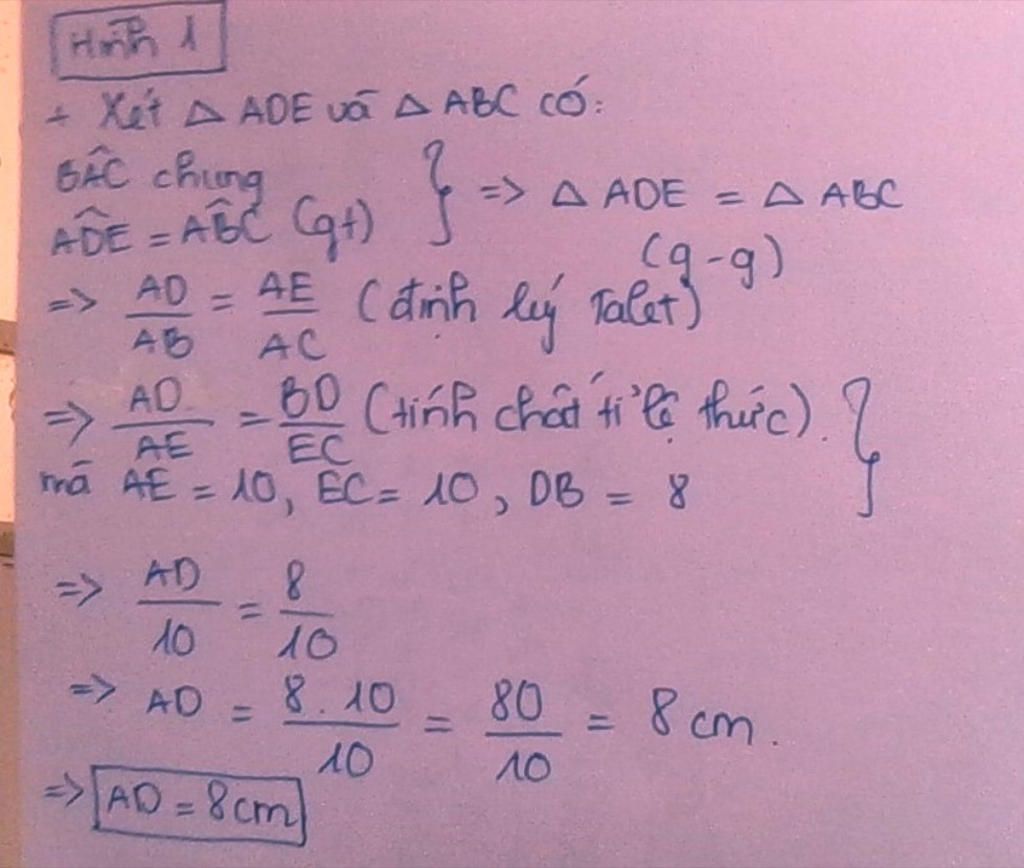 Hình 1
+ Xét △ ADE và △ ABC có:
BÂC chung
AD̂E = AB̂C (gt) } => △ ADE = △ ABC
(g-g)
=> AD/AB = AE/AC (định lý Talet)
=> AD/AE = BD/EC (tính chất tỉ lệ thức). }
mà AE = 10, EC = 10, DB = 8
=> AD/10 = 8/10
=> AD = 8.10/10 = 80/10 = 8 cm.
=> AD = 8cm